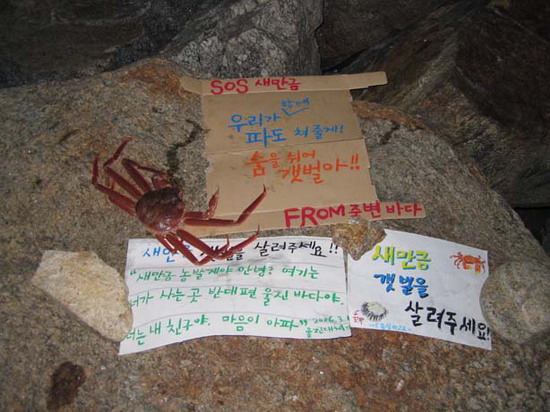 SOS 새만금
함께
우리가
파도 쳐 줄게!
숨을 쉬어
갯벌아!!
FROM 주변 바다
살려주세요!!
"새만금 농발게야 안녕? 여기는
너가 사는 곳 반대편 울진 바다야.
너는 내 친구야. 마음이 아파"
새만금
갯벌을
살려주세요!